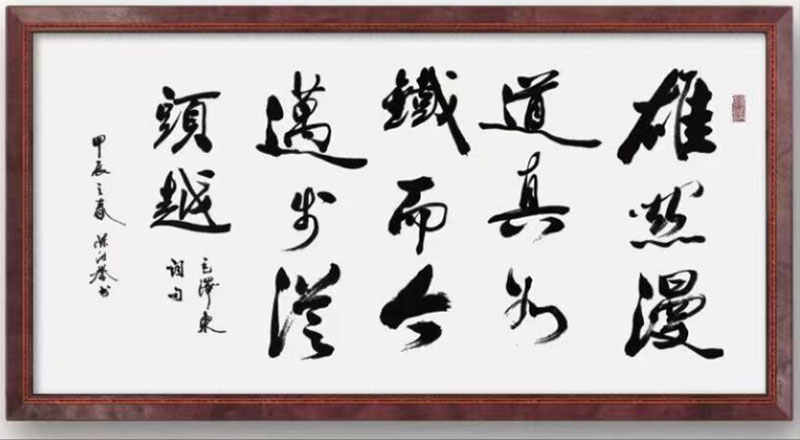 雄關漫
道真如
鐵而今
邁步從
頭越
毛澤東
詞句
甲辰之春 书